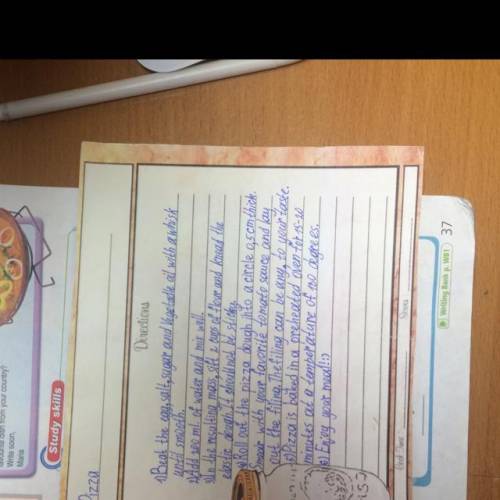 Pizza
Directions
1) Beat the egg, salt, sugar and vegetable oil with a whisk
until smooth.
2) Add 200 ml. of water and mix well.
3) In the resulting mass, sift 2 cups of flour and knead the
elastic dough. It should not be sticky.
4) Roll out the pizza dough into a circle 0,5 cm thick.
Smear with your favorite tomato sauce and lay
out the filling. The filling can be any, to your taste.
5) Pizza is baked in a preheated oven for 15-20
minutes at a temperature of 180 degrees.
6) Enjoy your meal! :)
Serves
favourite dish from your country?
Write soon,
Maria
Study skills
Writing Bank p. WB1
37